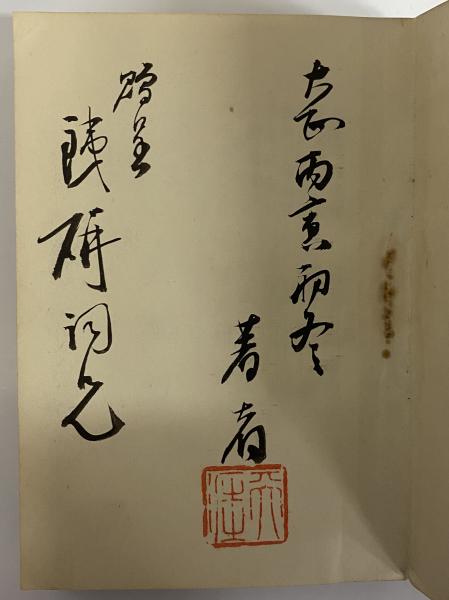 大正丙寅初冬
著者
贈呈
研詞兄